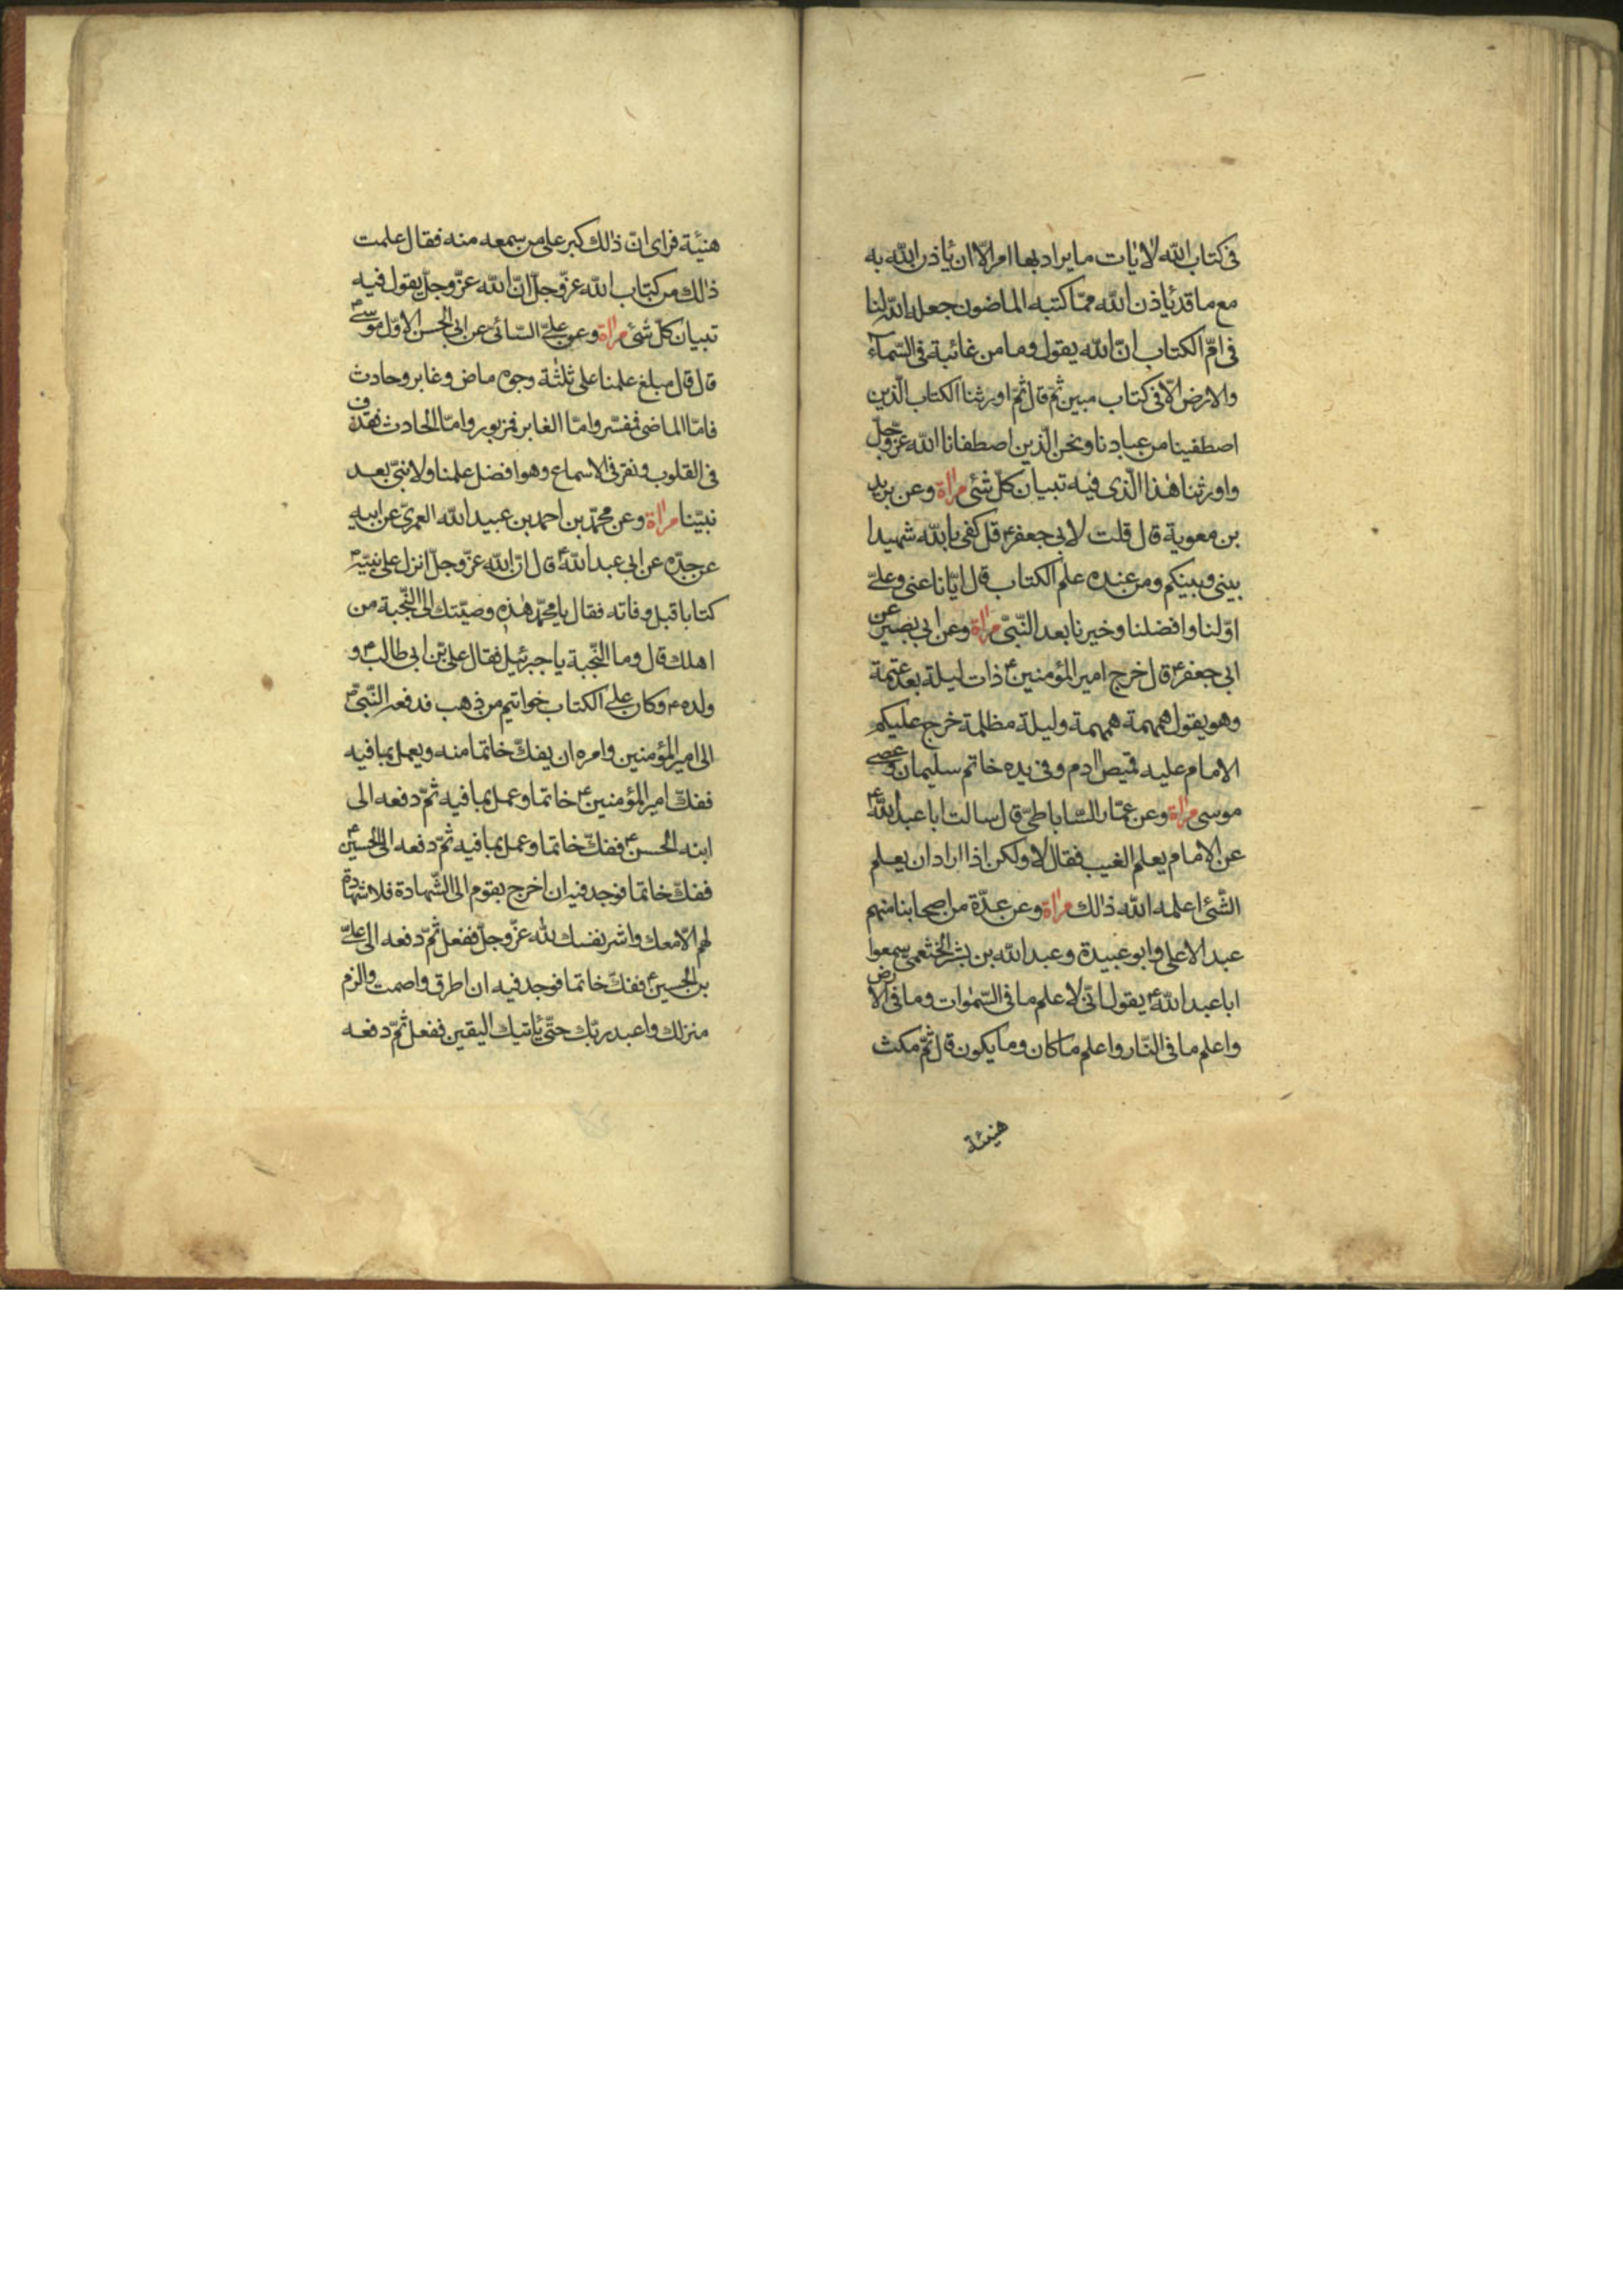 فی کتاب الله لایات ما یراد بها امر الّا ان یاذن الله به
مع ما قد یاذن الله ممّا کتبه الماضون جعله الله لنا
فی امّ الکتاب انّ الله یقول و ما من غائبة فی السّمآء
والارض الّا فی کتاب مبین ثمّ قال ثمّ اورثنا الکتاب الّذین
اصطفینا من عبادنا ونحن الّذین اصطفانا الله عزّ وجلّ
واورثنا هذا الّذی فیه تبیان کلّ شئ مراة وعن برید
بن معویة قال قلت لابی جعفرع قل کفی بالله شهیدا
بینی وبینکم ومن عنده علم الکتاب قال ایّانا عنی وعلیّ
اوّلنا وافضلنا وخیرنا بعد النّبیّ مراة وعن ابی بصیر عن
ابی جعفرع قال خرج امیر المؤمنینع ذات لیلة بعد عتمة
وهو یقول همهمة همهمة ولیلة مظلمة خرج علیکم
الامام علیه قمیص ادم وفی یده خاتم سلیمان وعصی
موسی مراة وعن عمّار السّاباطیّ قال سالت ابا عبد اللهع
عن الامام یعلم الغیب فقال لا ولکن اذا اراد ان یعلم
الشّئ اعلمه الله ذالك مراة وعن عدّة من اصحابنا منهم
عبد الاعلی وابو عبیدة وعبد الله بن بشر الخثعمی سمعوا
ابا عبد اللهع یقول انّی لاعلم ما فی السّموات وما فی الارض
واعلم ما فی النّار واعلم ما کان وما یکون قال ثمّ مکث
هنیئة
هنیئة فرای انّ ذالك کبر علی من سمعه منه فقال علمت
ذالك من کتاب الله عزّ وجلّ انّ الله عزّ وجلّ یقول فیه
تبیان کلّ شئ مراة وعن علیّ السّائی عن ابی الحسن الاوّل موسیع
قال قال مبلغ علمنا علی ثلثة وجوه ماض وغابر وحادث
فامّا الماضی فمفسّر وامّا الغابر فمزبور وامّا الحادث فقذف
فی القلوب ونقر فی الاسماع وهو افضل علمنا ولا نبیّ بعد
نبیّنا مراة وعن محمّد بن احمد بن عبید الله العمریّ عن ابیه
عن جدّه عن ابی عبد اللهع قال انّ الله عزّ وجلّ انزل علی نبیّه
کتابا قبل وفاته فقال یا محمّد هذه وصیّتك الی النّجبة من
اهلك قال وما النّجبة یا جبرئیل فقال علیّ بن ابی طالبع و
ولدهع وکان علی الکتاب خواتیم من ذهب فدفعه النّبیّ
الی امیر المؤمنین وامره ان یفكّ خاتما منه ویعمل بما فیه
ففكّ امیر المؤمنینع خاتما وعمل بما فیه ثمّ دفعه الی
ابنه الحسنع ففكّ خاتما وعمل بما فیه ثمّ دفعه الی الحسینع
ففكّ خاتما فوجد فیه ان اخرج بقوم الی الشّهادة فلا شهادة
لهم الّا معك واشر نفسك لله عزّ وجلّ ففعل ثمّ دفعه الی علیّ
بن الحسینع ففكّ خاتما فوجد فیه ان اطرق واصمت والزم
منزلك واعبد ربّك حتّی یاتیك الیقین ففعل ثمّ دفعه